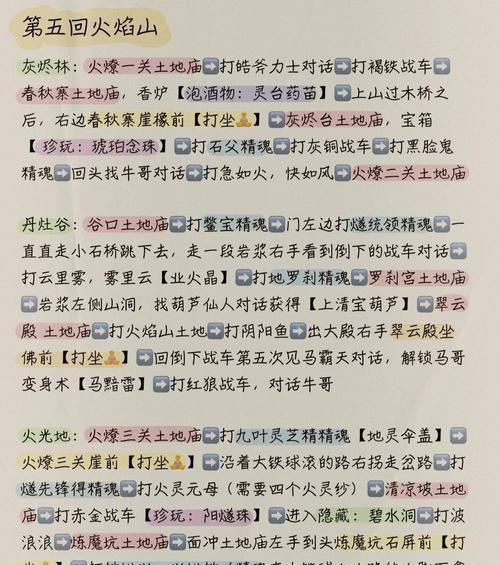 第五回火焰山
灰烬林：火燎一关土地庙➡️打皓斧力士对话➡️打褐铁战车➡️
春秋寨土地庙，香炉【泡酒物：灵台药苗】➡️上山过木桥之
后，右边春秋寨崖橡前【打坐🧘】➡️灰烬台土地庙，宝箱
【珍玩：琥珀念珠】➡️打石父精魂➡️打灰铜战车➡️打黑脸鬼
精魂➡️回头找牛哥对话➡️打急如火，快如风➡️火燎二关土地庙
丹灶谷：谷口土地庙➡️打鳖宝精魂➡️门左边打燧统领精魂➡️一
直直走小石桥跳下去，走一段岩浆右手看到倒下的战车对话➡️
打云里雾，雾里云【业火晶】➡️打地罗刹精魂➡️罗刹宫土地庙
➡️岩浆左侧山洞，找葫芦仙人对话获得【上清宝葫芦】➡️翠云
殿 土地庙➡️打火焰山土地➡️打阴阳鱼➡️出大殿右手翠云殿坐
佛前【打坐🧘】➡️回倒下战车第五次见马霸天对话，解锁马哥
变身术【马黯雷】➡️打红狼战车，对话牛哥
火光地：火燎三关土地庙➡️打九叶灵芝精精魂【地灵伞盖】➡️
火燎三关崖前【打坐🧘】➡️沿着大铁球滚的路右拐走岔路➡️打
燧先锋得精魂➡️打火灵元母（需要四个火灵纱）➡️清凉坡土地
庙➡️打赤金战车【珍玩：阳燧珠】➡️进入隐藏：碧水洞➡️打波
浪浪➡️炼魔坑土地庙➡️面冲土地庙左手到头炼魔坑石屏前【打